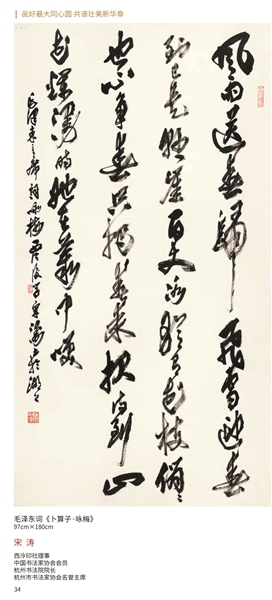 画好最大同心圆 共谱壮美新华章
風雨送春歸飛雪迎春
到已是懸崖百丈冰猶有花枝俏
也不争春只把春来报待到山
花爛漫時她在叢中咲
毛澤東主席詞咏梅 宋濤於湖上
毛泽东词《卜算子·咏梅》
97cm×180cm
宋 涛
西泠印社理事
中国书法家协会会员
杭州书法院院长
杭州市书法家协会名誉主席
34